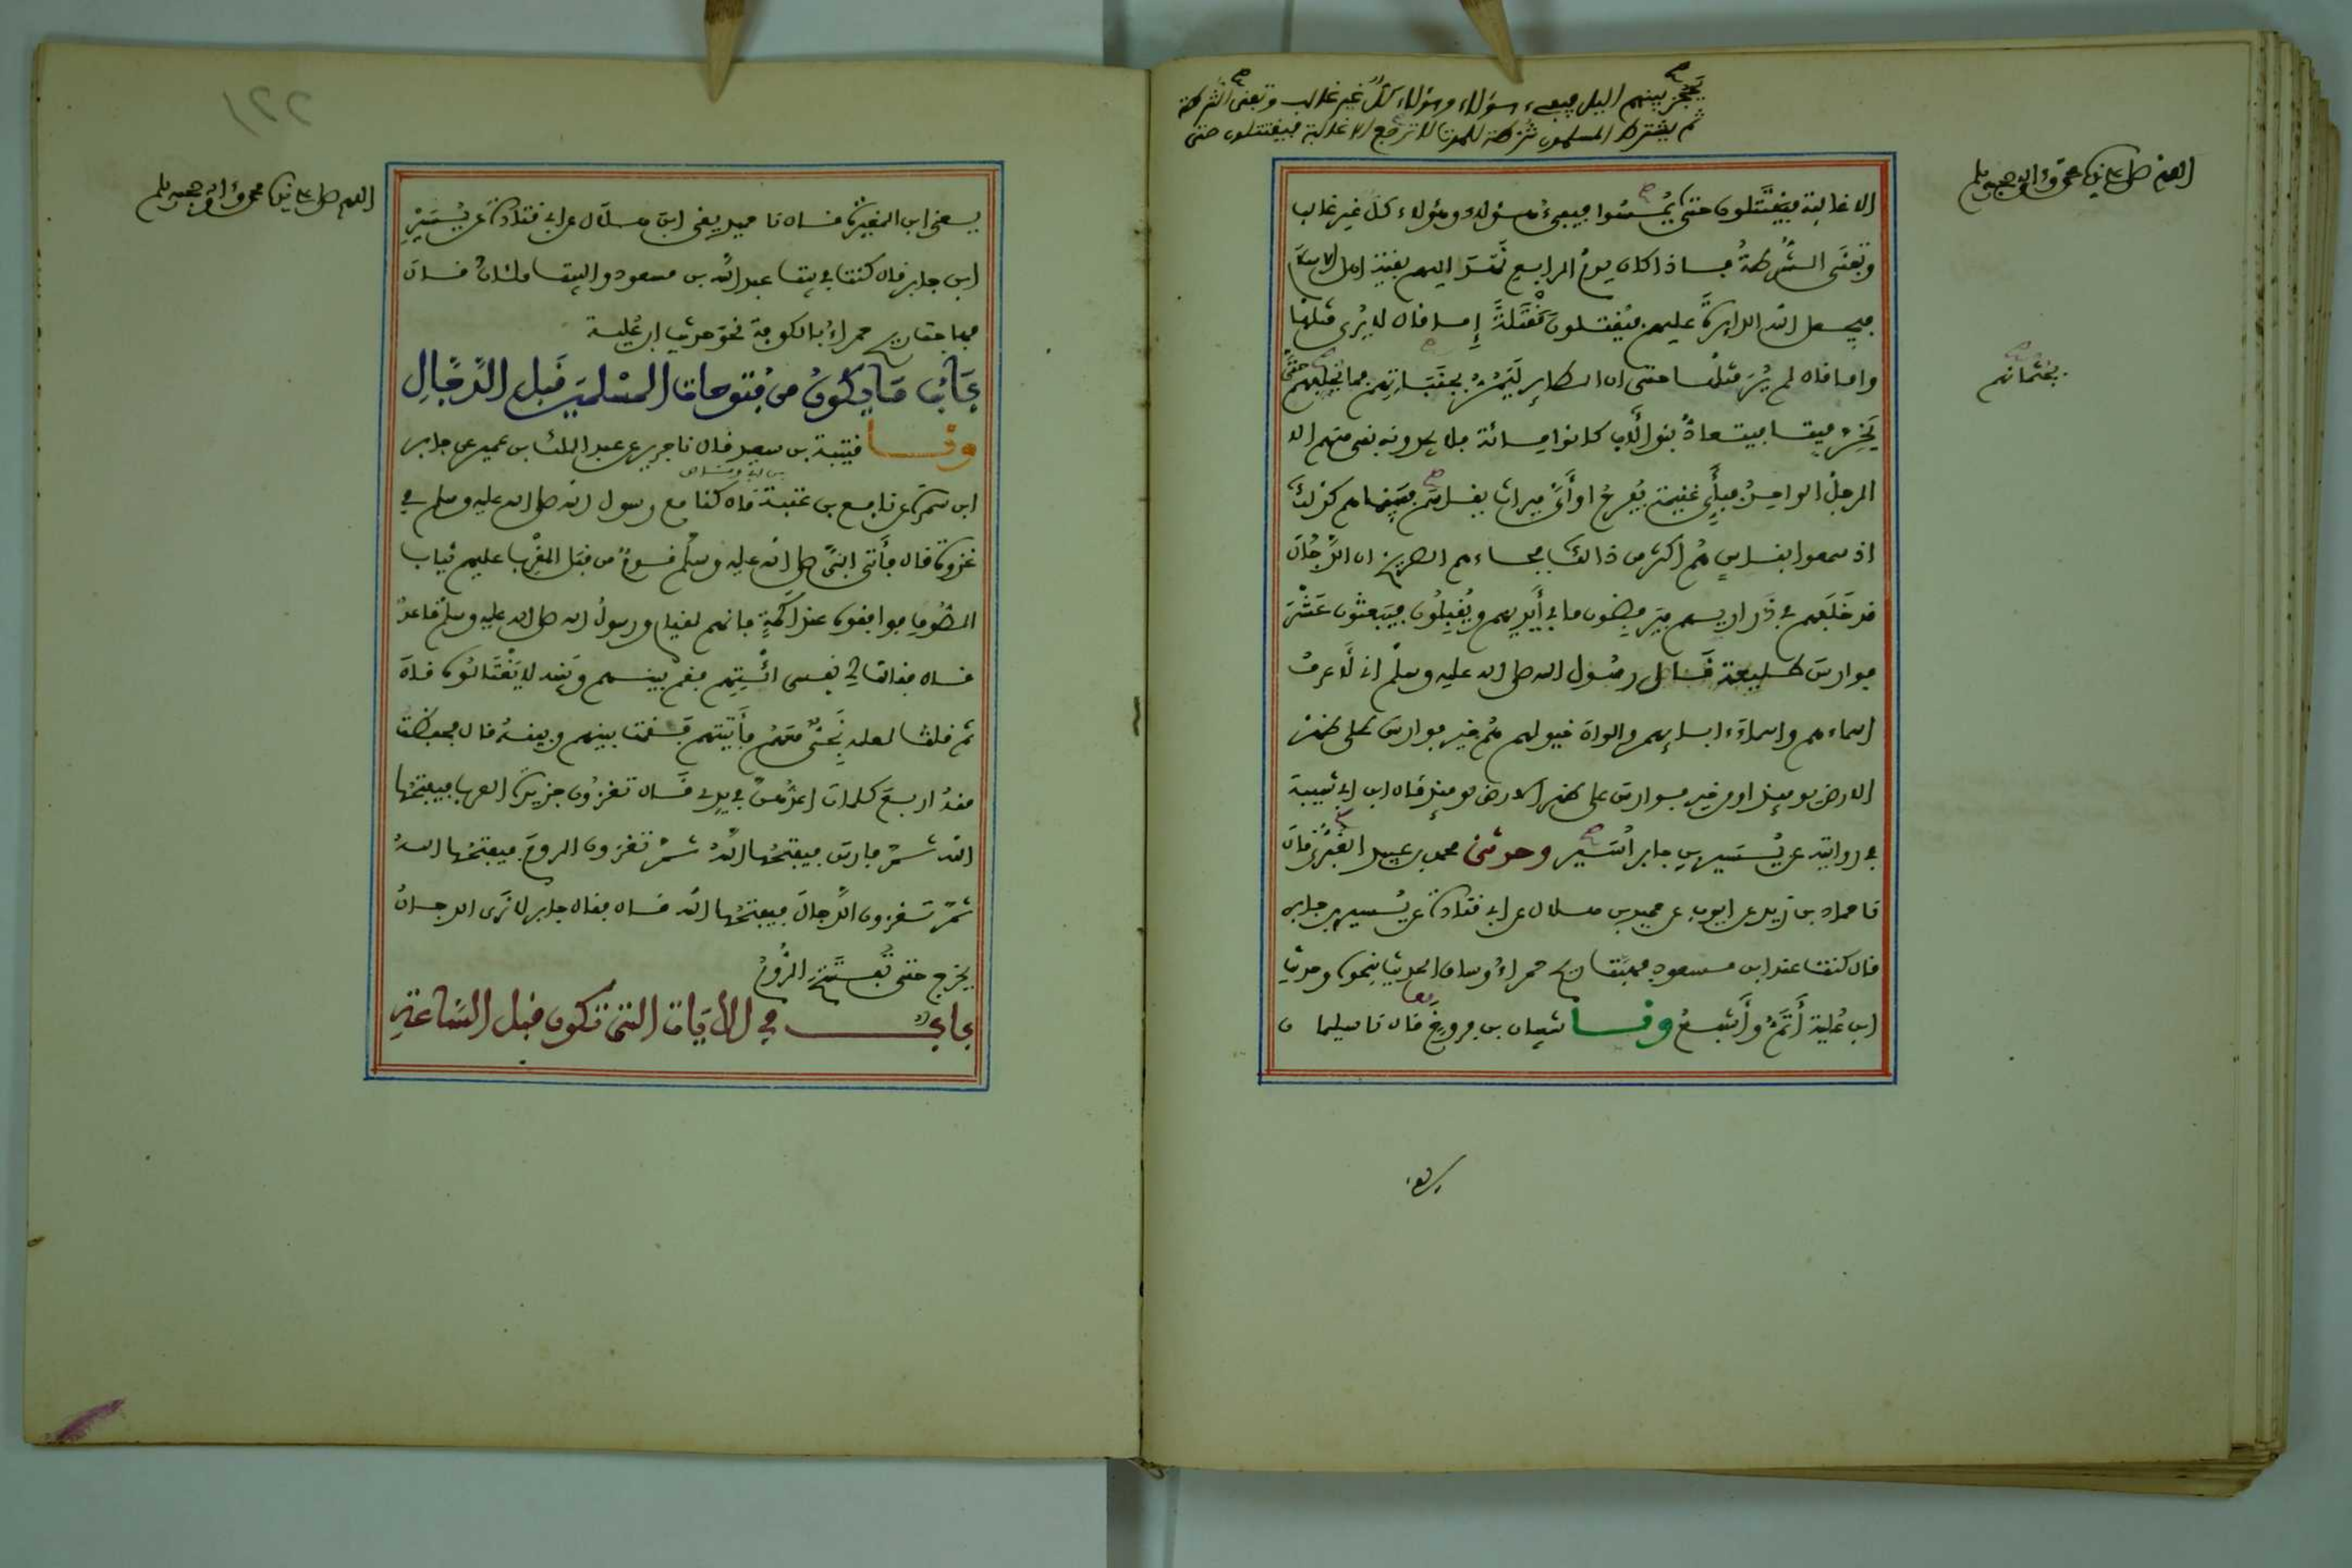 يَحجز بينهم اليل فيفيء هؤلاء وهؤلاء كل غير غالب وتفنى الشرطة
ثم يشترط المسلمون شرطة للموت لا ترجع الا غالبة فيقتتلون حتى
اللهم صل على نبينا محمد وءاله وصحبه وسلم
الا غالبة فيَقْتَتلون حتى يُمْسُوا فيفيءُ هـؤلاء وهؤلاء كل غير غالب
وتفنى الشُّرطةُ فـاذا كان يومُ الرابع نَهَدَ اليهم بقية اهل الاسلام
فيجعل الله الدايرة عليهم فيُقتلون مَقْتَلةً إمـا قال لا يُرى مثلها
واما قال لم يُرَ مثلها حتى ان الطاير ليَمُرُّ بجَنَباتهم فما يُخَلِّفهم حتى
بجثمانهم
يَخِرَّ ميتا فيتعادُّ بنو الأَب كانوا مـائة فلا يجدونه بقى منهم الا
الرجلُ الواحدُ فبأَيِّ غنيمة يُفرحُ او أَيُّ ميراث يقاسم فبينما هم كذلك
اذ سمعوا بناس هُم اكثر من ذالك فجاءهم الصريخ ان الدَّجال
قد خَلَفهم في ذَراريـهم فيَرفضون ما في أَيديهم ويُقبِلُون فيبعثون عَشْرَ
فوارسَ طـليعة قـال رسُول الله صلى الله عليه وسلم انى لَأعرفُ
اسماءهم واسماءَ ءابـايهم والوانَ خيولهم هُم خير فوارسَ على ظهر
الارض يوميذ او من خير فـوارسَ على ظهر الارض يوميذ قال ابن ابى شيبة
في روايته عن يُسَيـر بن جابر أُسَيـر وحدثنى محمد بن عبيد الغُبَرى قال
نا حماد بن زيد عن ايوب عن حميد بن هـلال عن ابى قتادة عن يُسيـر بن جابر
قال كنت عند ابن مـسعود فهبت ريح حمراءُ وساق الحديث بنحوه وحديث
ابن عُلية أَتَمُّ وأَشبـعُ ونـا شيبان بن فروخَ قال نا سليمان
يعنى
١٢٢
اللهم صل على نبينا محمد وءاله وصحبه وسلم
يـعنى ابن المغيرة قـال نا حميد يعنى ابن هـلال عن ابى قتادة عن يُسَيْرِ
ابن جابر قال كنت في بيت عبد الله بن مسعود والبيت ملئانُ قـال
فهاجت ريح حمراءُ بالكوفة نحوَ حديث ابن عُليـة
بَابُ مَا يكُونُ من فتوحات المسْلمينَ قَبل الدَّجَّالِ
ونـا قتيبة بن سعيد قال نا جرير عن عبد الملك بن عمير عن جابر
ابن سَمرة عن نافع بن عتبة قال كنا مع رسول الله صلى الله عليه وسلم في
غزوة قال فأَتى النبيَّ صلى الله عليه وسلم قـومٌ من قبَل المَغْرِب عليهم ثياب
الصُّوفِ فوافقوه عند اكَمَةٍ فانهم لقيام ورسولُ الله صلى الله عليه وسلم قاعدٌ
قـال فقالت لي نفسى ائْتِهِم فقم بينـهم وبينه لا يَغْتَالُونه قال
ثم قلت لعله نَجِىٌّ مَعَهُم فأَتيتهم فقُمت بينهم وبينه قال فحفظت
منهُ اربعَ كلمات اعدُّهنَّ في يدى قـال تغزُون جزيرة العرب فيفتحُها
الله ثـمَّ فارسَ فيفتحُها اللهُ ثـمَّ تغزون الرومَ فيفتحُها اللهُ
ثمَّ تـغزون الدَّجالَ فيفتحُها اللهُ قـال فقال جابر لا نَرَى الدجـالَ
يخرج حتى تُفـتَحَ الرُّومُ
باب في الأيَات التى تكون قبل السَّاعَةِ